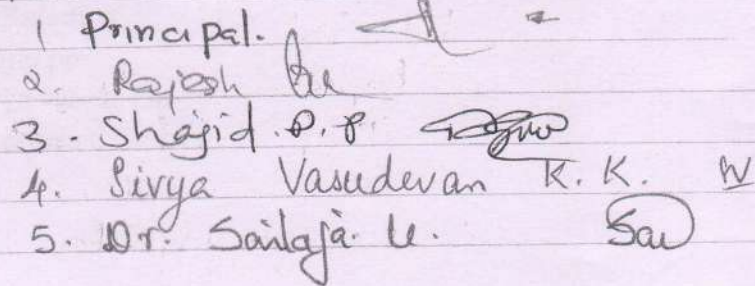 1 Principal.
2. Rajesh
3. Shajid. P. P.
4. Sivya Vasudevan K. K.
5. Dr. Sailaja. U.